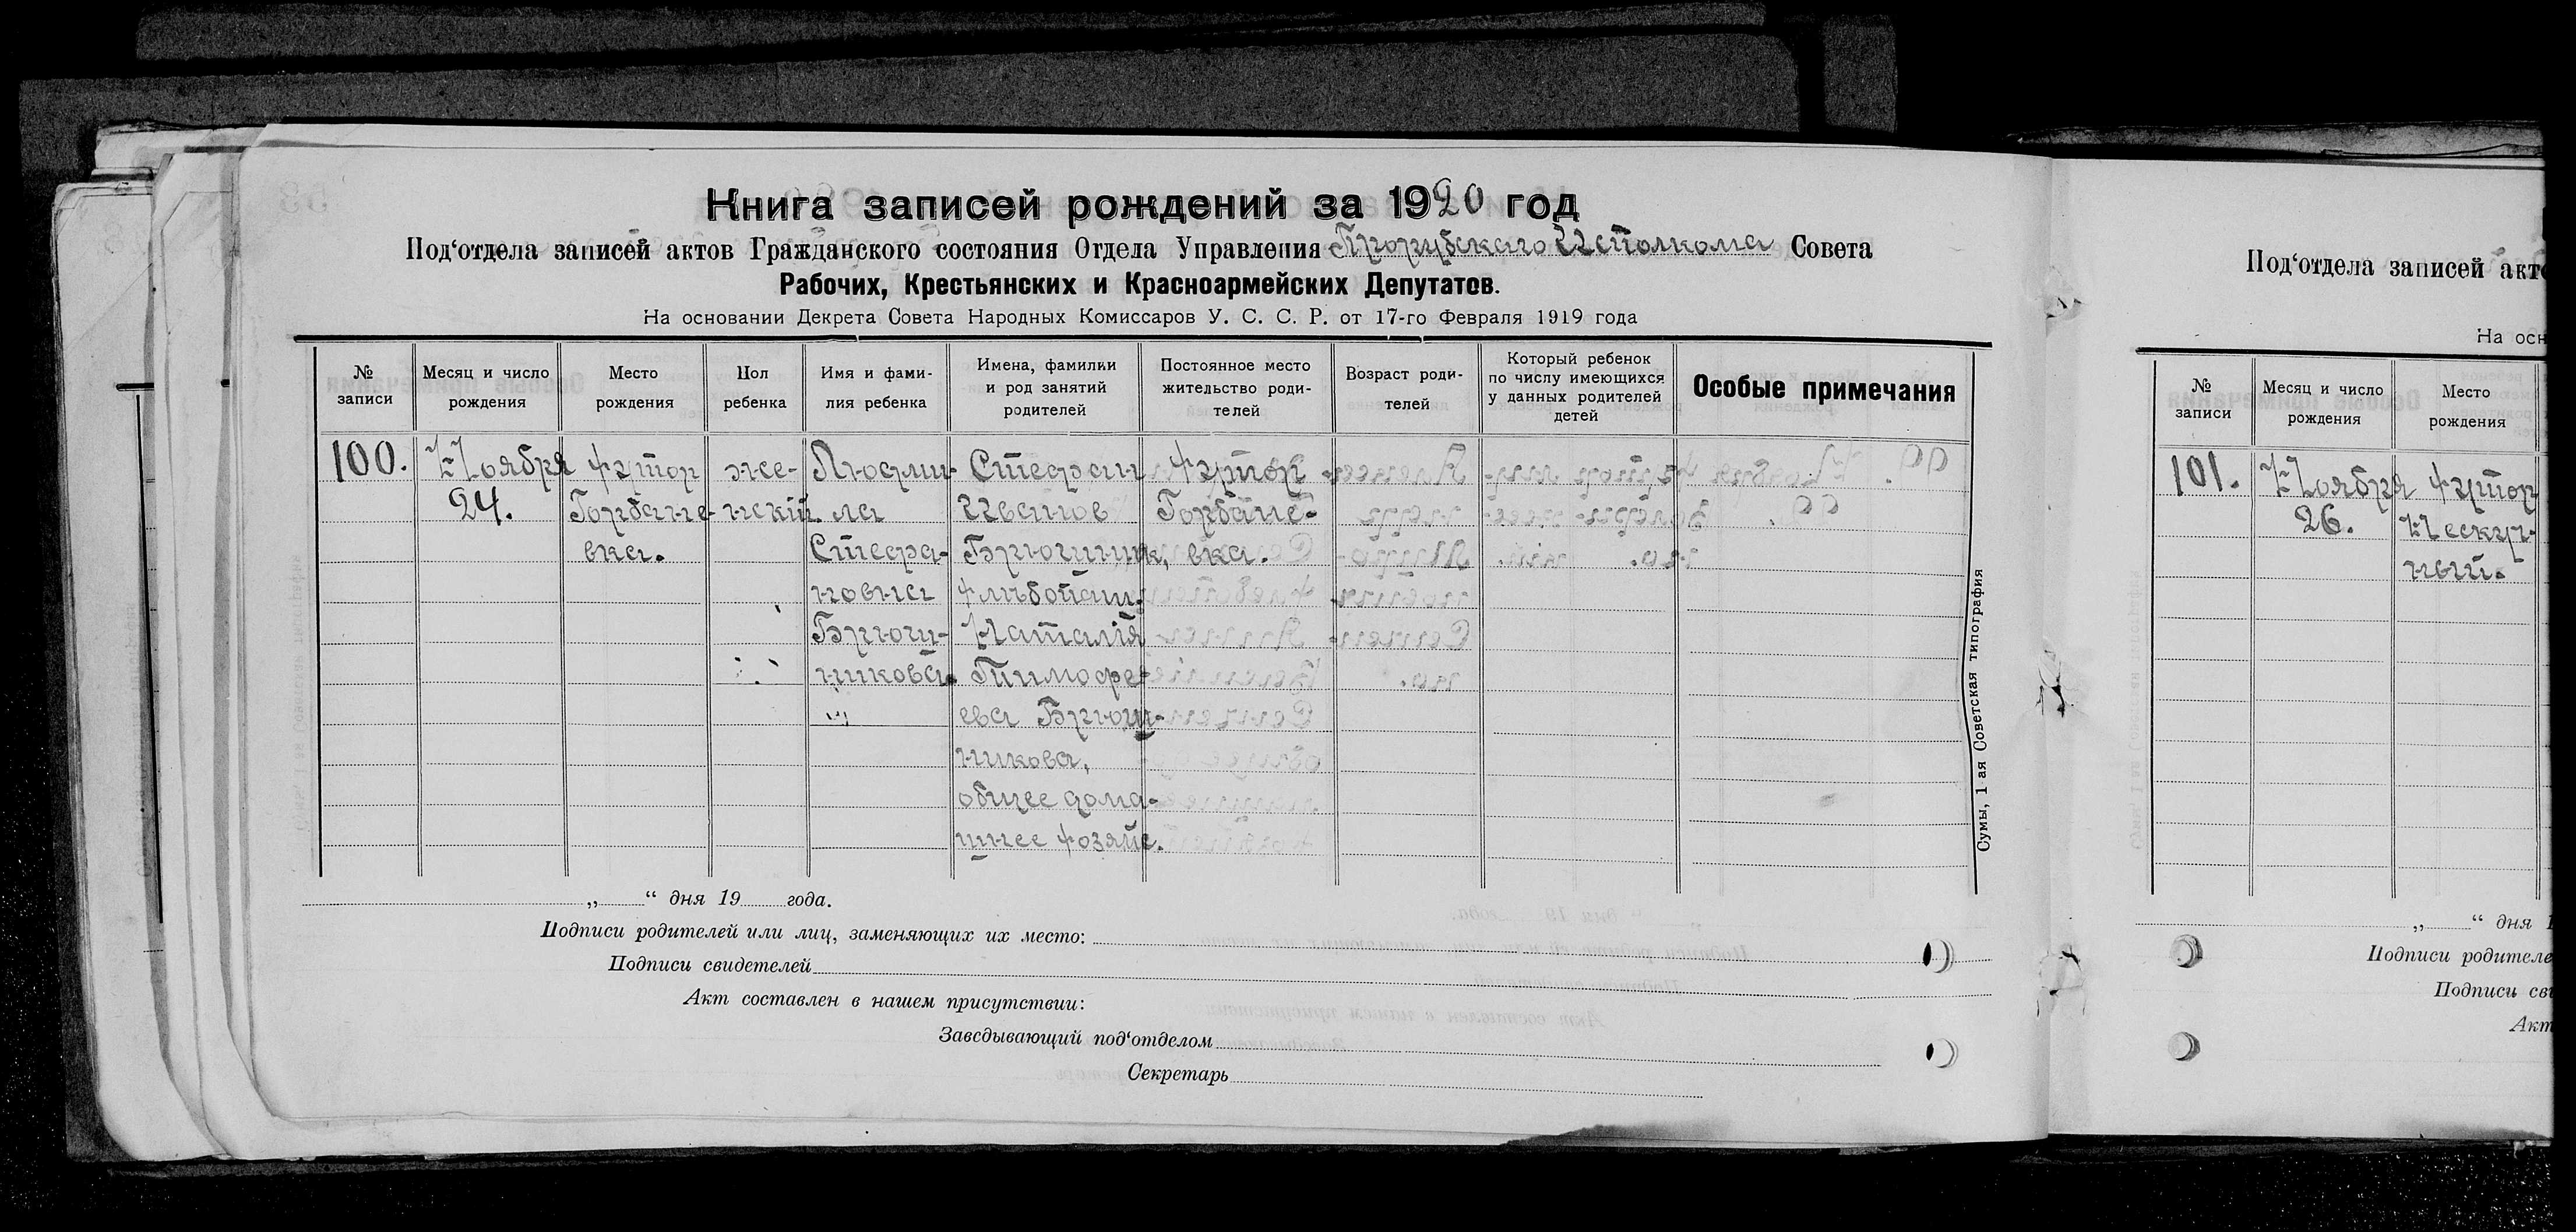 Книга записей рождений за 1920 год
Под‘отдела записей актов Гражданского состояния Отдела Управления Прорубского Исполкома Совета
Рабочих, Крестьянских и Красноармейских Депутатов.
На основании Декрета Совета Народных Комиссаров У. С. С. Р. от 17-го Февраля 1919 года
№ записи
Месяц и число рождения
Место рождения
Пол ребенка
Имя и фами-
лия ребенка
Имена, фамилии
и род занятий
родителей
Постоянное место
жительство роди-
телей
Возраст роди-
телей
Который ребенок
по числу имеющихся
у данных родителей
детей
Особые примечания
100.
Ноября
24.
Хутор
Горбане-
вка.
же-
нский.
Людми-
ла
Стефа-
новна
Брюш-
никова.
Стефан
Иванов
Брюшник,
хлѣбопаш.
Наталія
Тимофе-
ева Брюш-
никова,
общее дома-
шнее хозяйс.
Хутор
Горбане-
вка.
„ “ дня 19 года.
Подписи родителей или лиц, заменяющих их место:
Подписи свидетелей
Акт составлен в нашем присутствии:
Заведывающий под‘отделом
Секретарь
Сумы, 1 ая Советская типография
Под‘отдела записей акто
На осн
№ записи
Месяц и число
рождения
Место
рождения
101.
Ноября
26.
Хутор
Нескуч-
ный.
„ “ дня 1
Подписи родителе
Подписи сви
Акт